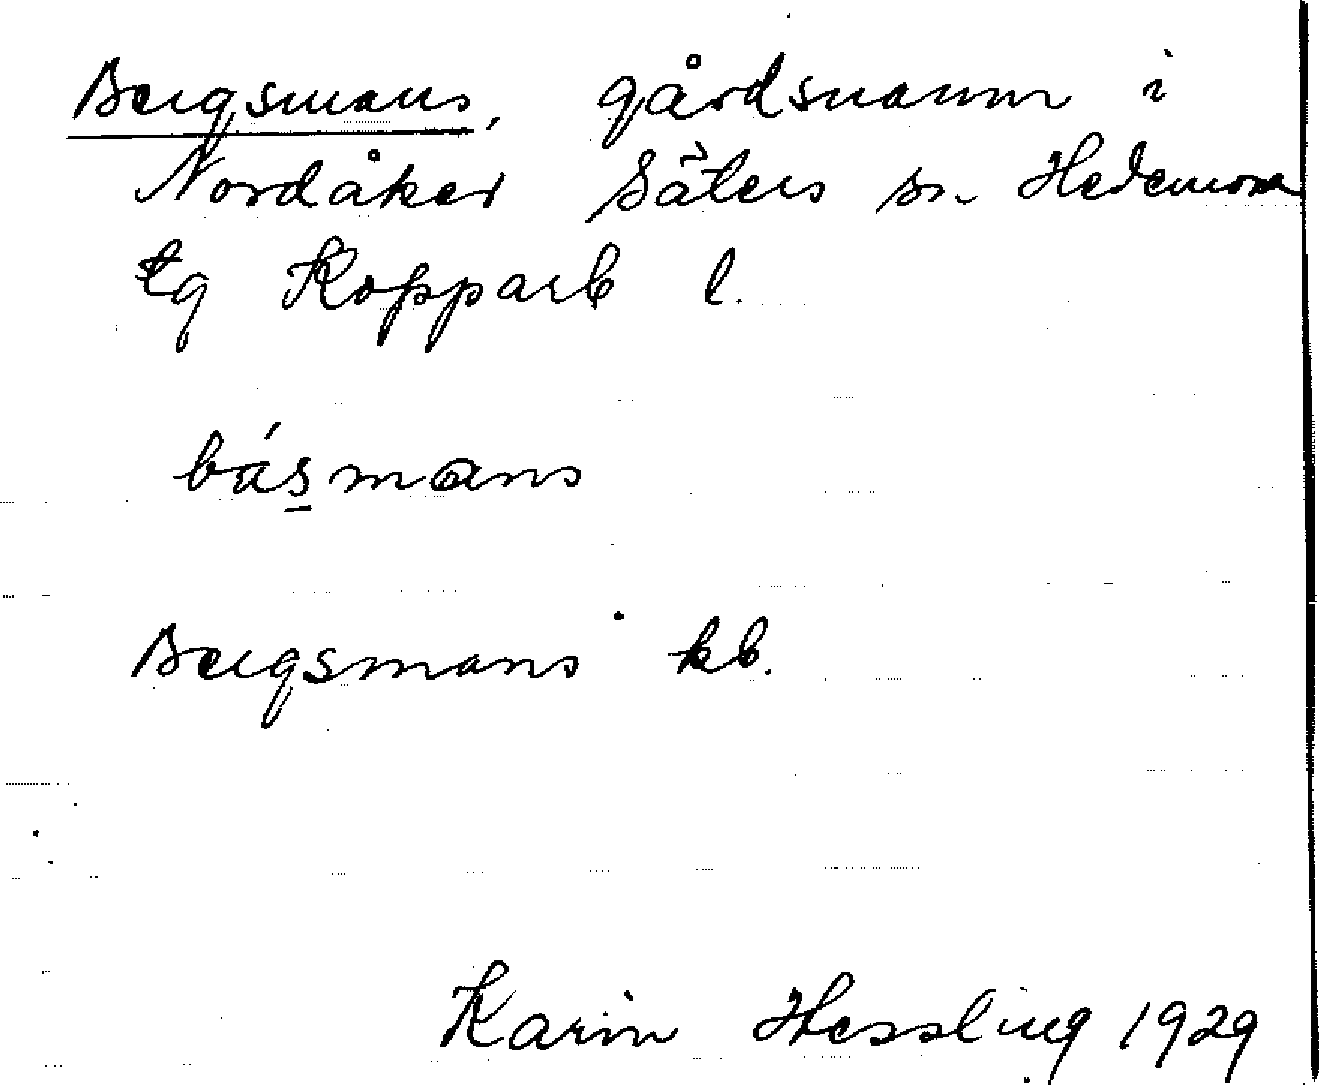 Bergsmans, gårdsnamn i
Nordåker Säters sn. Hedemora
tg Kopparb l.
básmans
Bergsmans kb.
Karin Hessling 1929